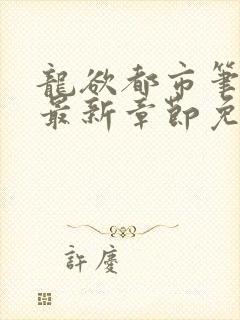 龍欲都市筆
最新章節免
許慶